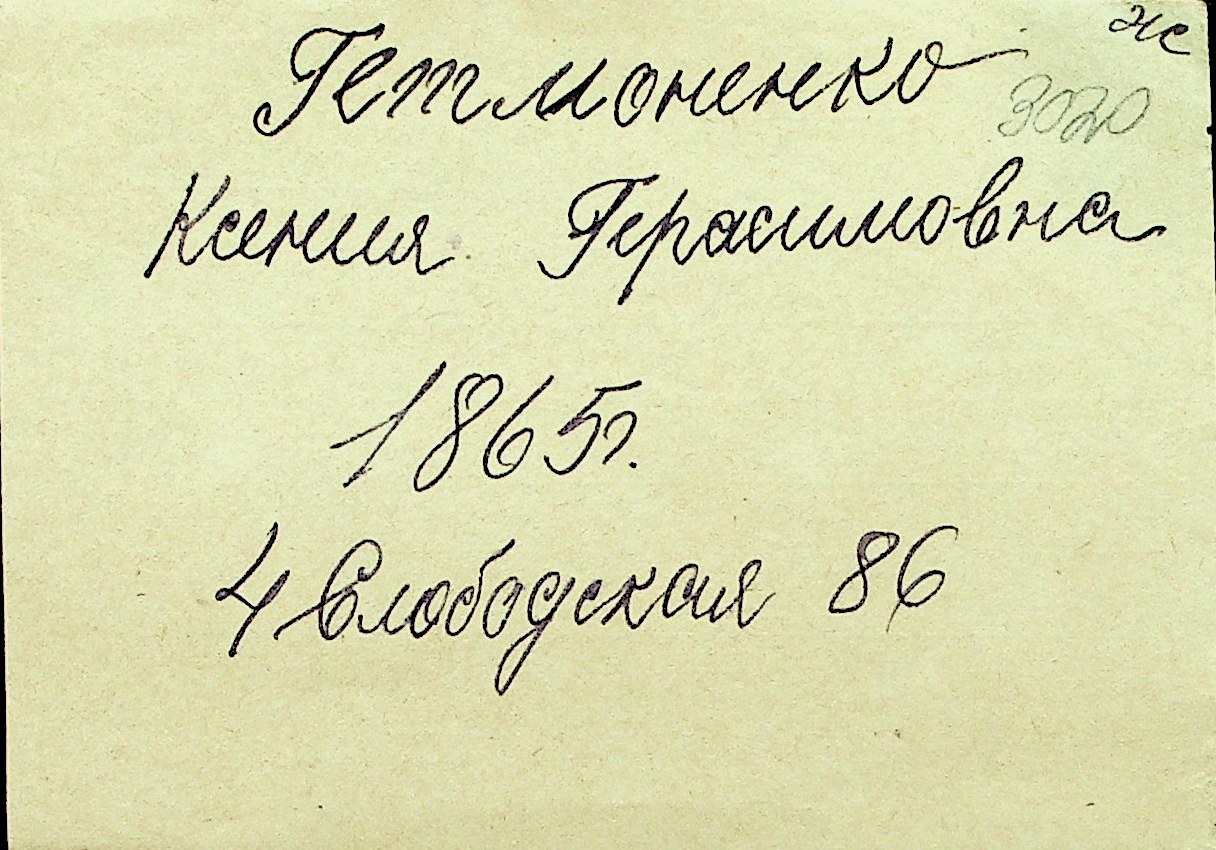 же
Гетмоненко
3020
Ксения Герасимовна
1865г.
4 Слободская 86